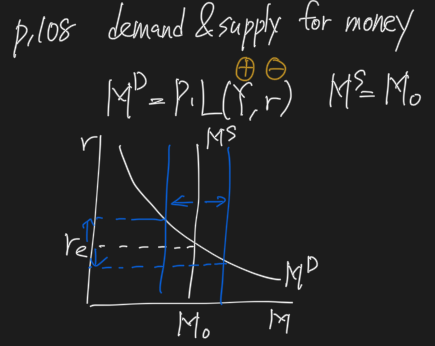 p.108 demand & supply for money
⊕ ⊖
M^D = P.L(Y, r) M^S = M₀
r M^S
rₑ
M^D
M₀ M